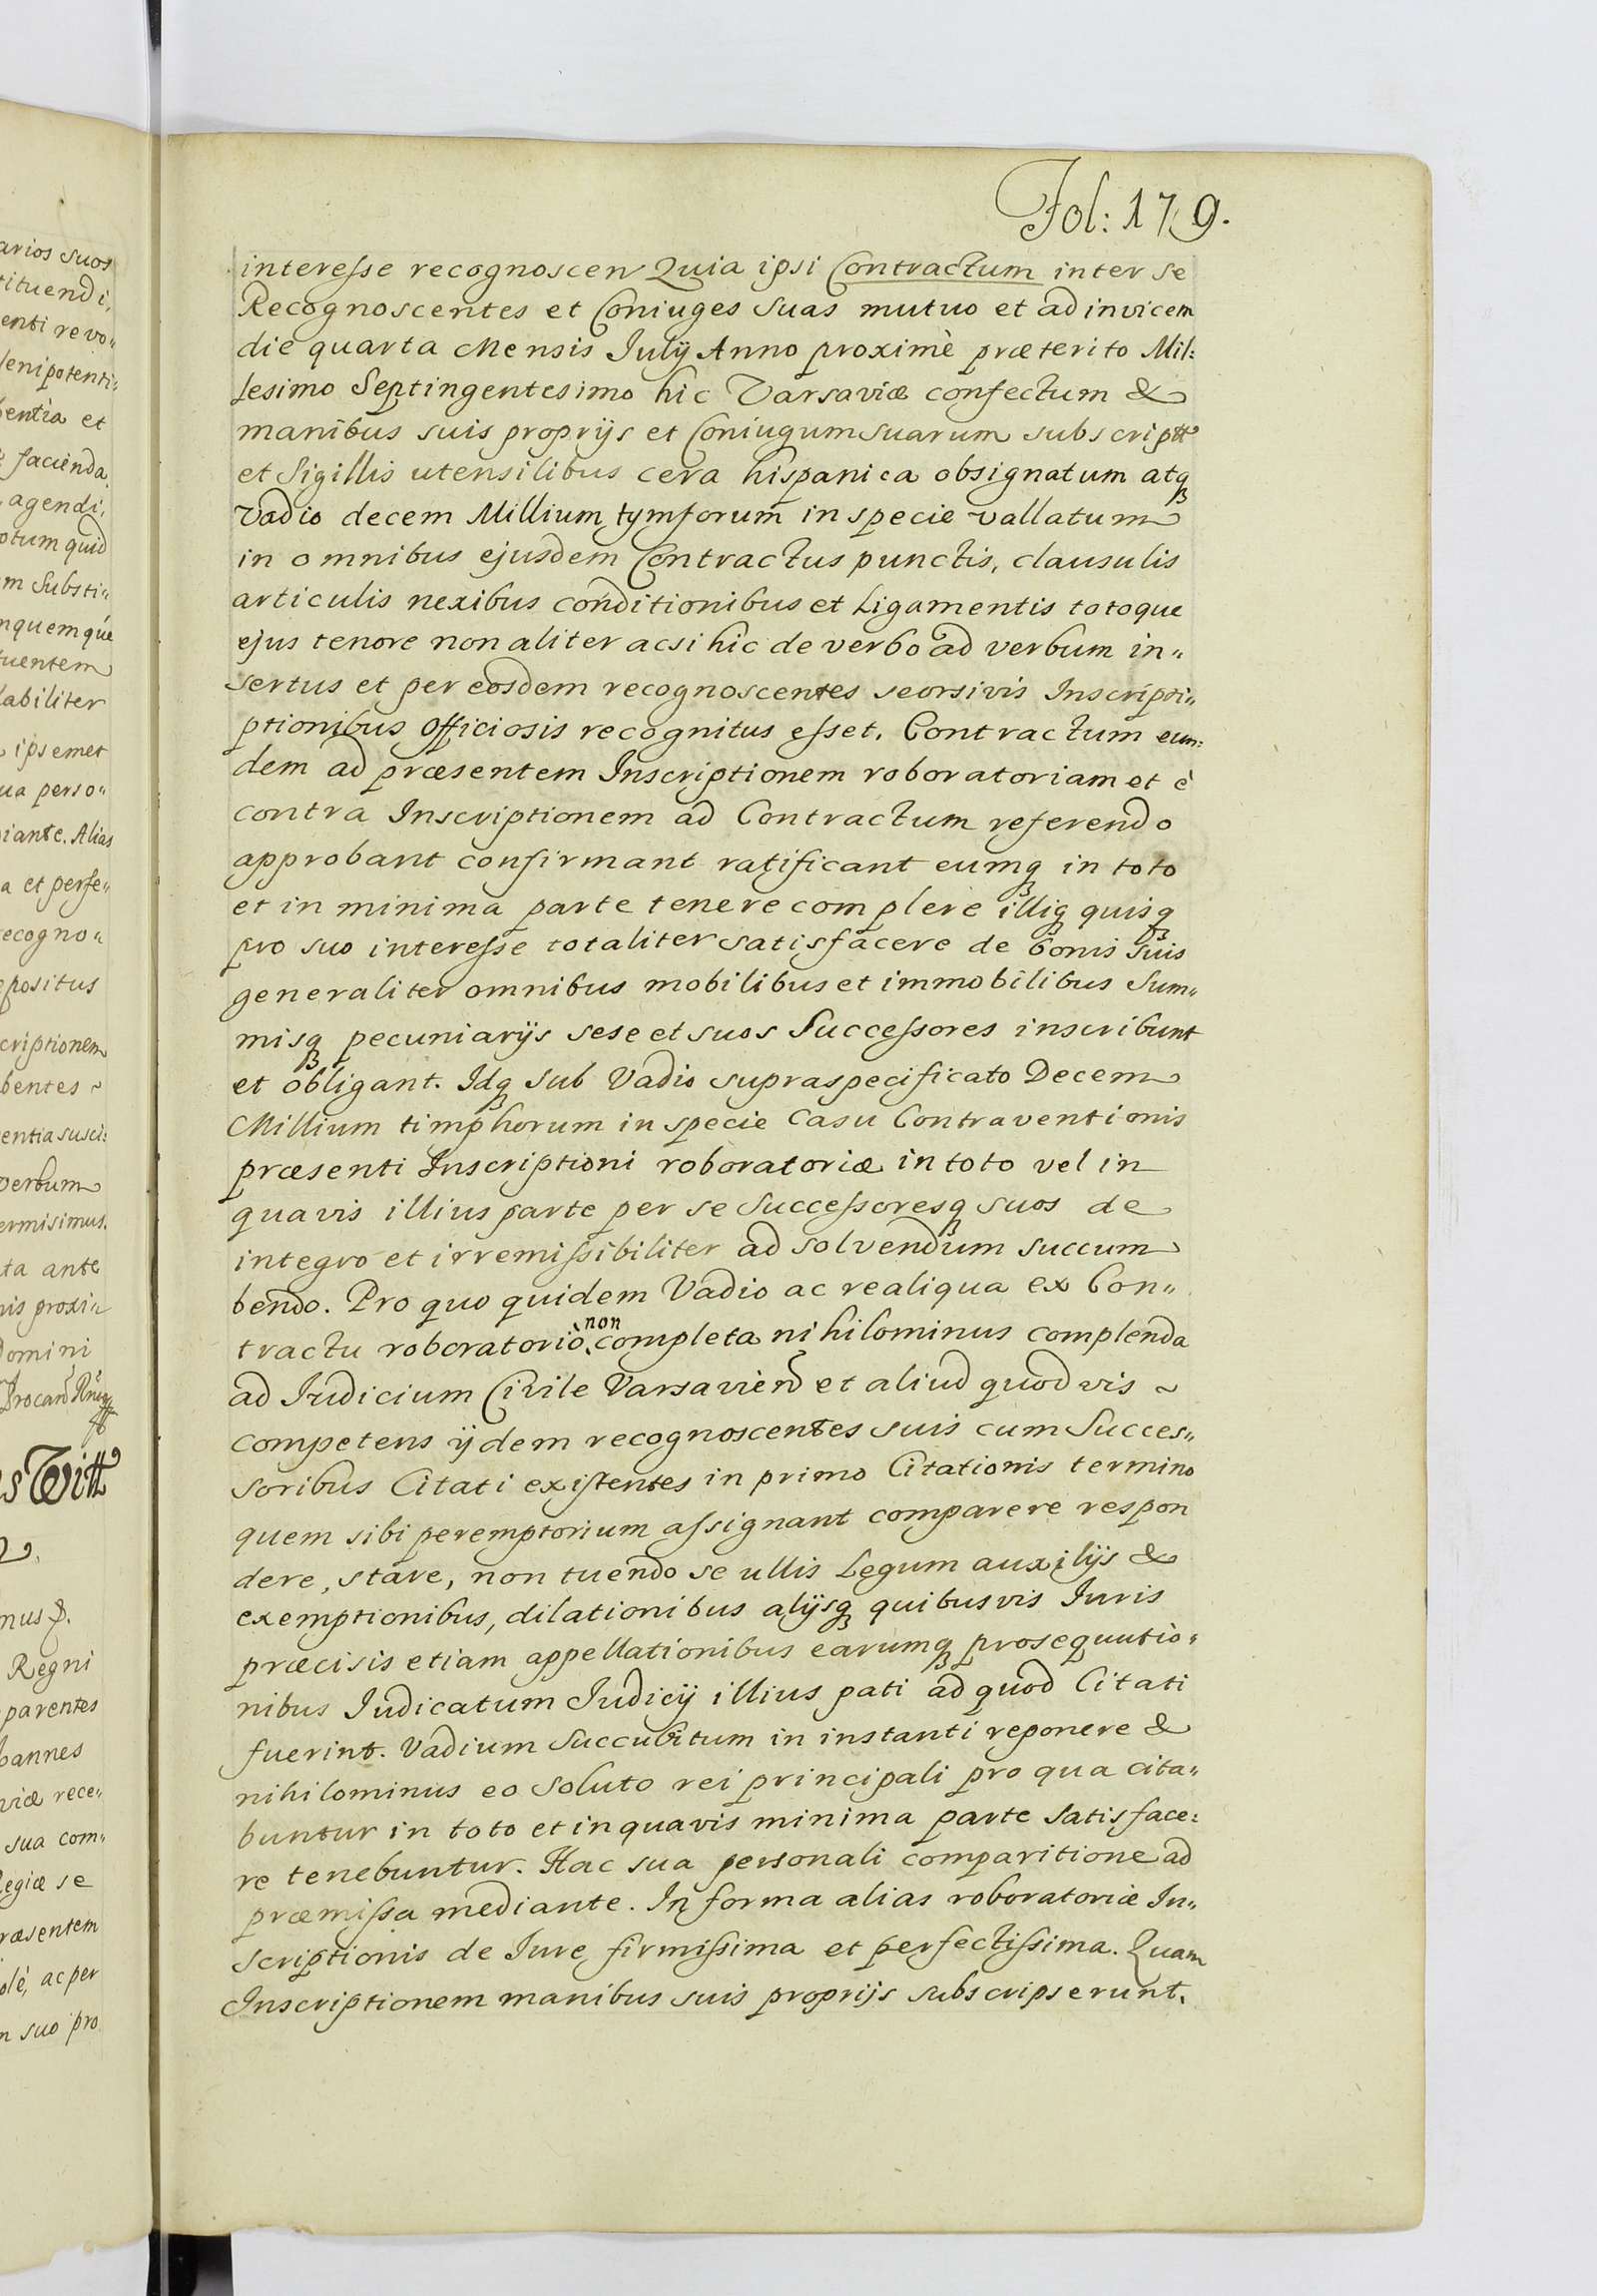 Fol: 179.
interesse recognoscen Quia ipsi Contractum inter se
Recognoscentes et Coniuges suas mutuo et ad invicem
die quarta Mensis Julÿ Anno proximè præterito Mil:
lesimo Septingentesimo hic Varsaviæ confectum &
manibus suis proprÿs et Coniugum suarum subscriptt
et Sigillis utensilibus cera hispanica obsignatum atq
Vadio decem Millium tymforum in specie vallatum
in omnibus ejusdem Contractus punctis, clausulis
articulis nexibus conditionibus et Ligamentis totoque
ejus tenore non aliter acsi hic de verbo ad verbum in„
sertus et per eosdem recognoscentes seorsivis Inscripti„
ptionibus officiosis recognitus esset. Contractum eun:
dem ad præsentem Inscriptionem roboratoriam et è
contra Inscriptionem ad Contractum referendo
approbant confirmant ratificant eumq in toto
et in minima parte tenere complere illiq quisq
pro suo interesse totaliter satisfacere de bonis suis
generaliter omnibus mobilibus et immobilibus Sum„
misq pecuniarÿs sese et suos Successores inscribunt
et obligant. Idq sub Vadio supraspecificato Decem
Millium timphorum in specie Casu Contraventionis
præsenti Inscriptioni roboratoriæ in toto vel in
quavis illius parte per se Successoresq suos de
integro et irremissibiliter ad solvendum succum
bendo. Pro quo quidem Vadio ac realiqua ex Con„
tractu roboratorio non completa nihilominus complenda
ad Judicium Civile Varsavien et aliud quod vis ~
competens ÿdem recognoscentes suis cum Succes„
soribus Citati existentes in primo Citationis termino
quem sibi peremptorium assignant comparere respon
dere, stare, non tuendo se ullis Legum auxilÿs &
exemptionibus, dilationibus alÿsq quibusvis Iuris
præcisis etiam appellationibus earumq prosequutio„
nibus Judicatum Judicÿ illius pati ad quod Citati
fuerint. Vadium Succubitum in instanti reponere &
nihilominus eo soluto rei principali pro qua cita„
buntur in toto et in quavis minima parte Satisface:
re tenebuntur. Hac sua personali comparitione ad
præmissa mediante. In forma alias roboratoriæ In„
scriptionis de Iure firmissima et perfectissima. Quam
Inscriptionem manibus suis proprÿs subscripserunt.
arios suos
tituendi,
enti revo„
lenipotenti„
entia et
facienda
agendi,
otum quid
m Substi„
nquemque
tuentem
labiliter
ipsemet
ua perso„
diante. Alias
a et perfe„
recogno„
positus
criptionem
bentes ~
entia susci:
verbum
ermisimus.
ta ante
nis proxi„
Domini
s Witt
mus
Regni
parentes
oannes
viæ rece„
sua com„
Regiæ se
ræsentem
olè, ac per
n suo pro